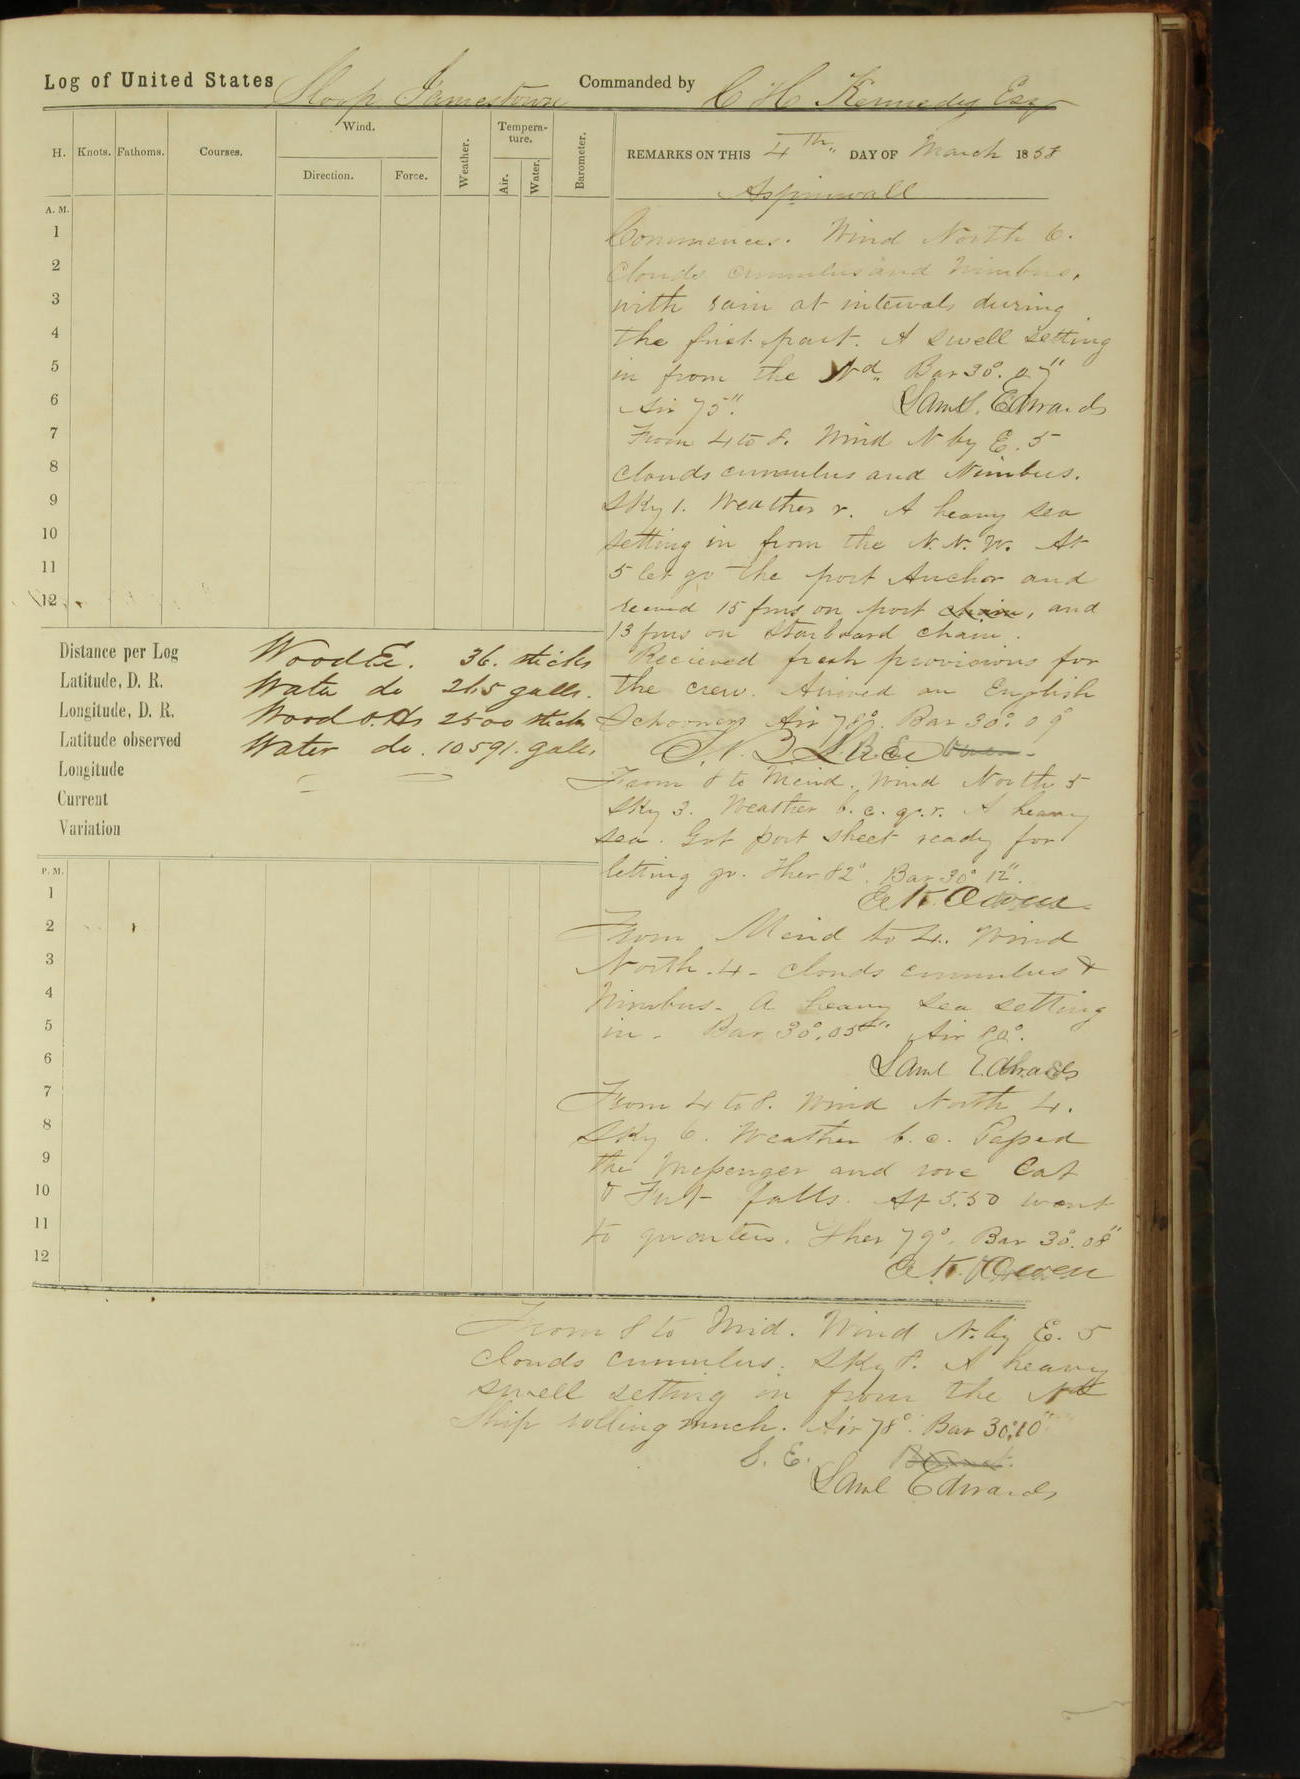 Log of United States Sloop Jamestown Commanded by C H Kennedy Esq
H. Knots. Fathoms. Courses. Wind. Direction. Force. Weather. Tempera-ture. Air. Water. Barometer.
REMARKS ON THIS 4th,, DAY OF March 1858
Aspinwall
A. M.
1
2
3
4
5
6
7
8
9
10
11
12
Commences. Wind North 6.
Clouds cumulus and Nimbus,
with rain at intervals during
the first part. A swell setting
in from the Nd,, Bar 30°. 07"
Air 75". Saml. Edwards
From 4 to 8. Wind N by E. 5
Clouds cumulus and Nimbus.
Sky 1. Weather r. A heavy sea
setting in from the N. N. W. At
5 let go the port Anchor and
15 fms on port chain, and
13 fms on starboard chain.
Recieved fresh provisions for
the crew. Arrived an English
Schooner Air 78°. Bar 30°. 09
From 8 to Meind. Wind North 5
Sky 3. Weather b. c. q. r. A heavy
sea. Got port sheet ready for
letting go. Ther 82°. Bar 30° 12".
E. K. Owen
Distance per Log
Latitude, D. R.
Longitude, D. R.
Latitude observed
Longitude
Current
Variation
Wood E. 36. sticks
Water do 265 galls.
Wood O. H. 2500 sticks
Water do. 10591. galls.
P. M.
1
2
3
4
5
6
7
8
9
10
11
12
From Meind to 4. Wind
North. 4 - clouds cumulus &
Nimbus - A heavy sea setting
in - Bar 30°.05" Air 80°.
Saml Edwards
From 4 to 8. Wind North 4.
Sky 6. Weather b. c. Passed
the Messenger and rove Cat
& Fish falls. At 5.50 went
to quarters. Ther 79°. Bar 30°.08"
E. K. Owen
From 8 to Mid. Wind N. by E. 5
clouds cumulus. Sky 8. A heavy
swell setting in from the Nd
Ship rolling much. Air 78°. Bar 30°.10"
S. E.
Saml Edwards